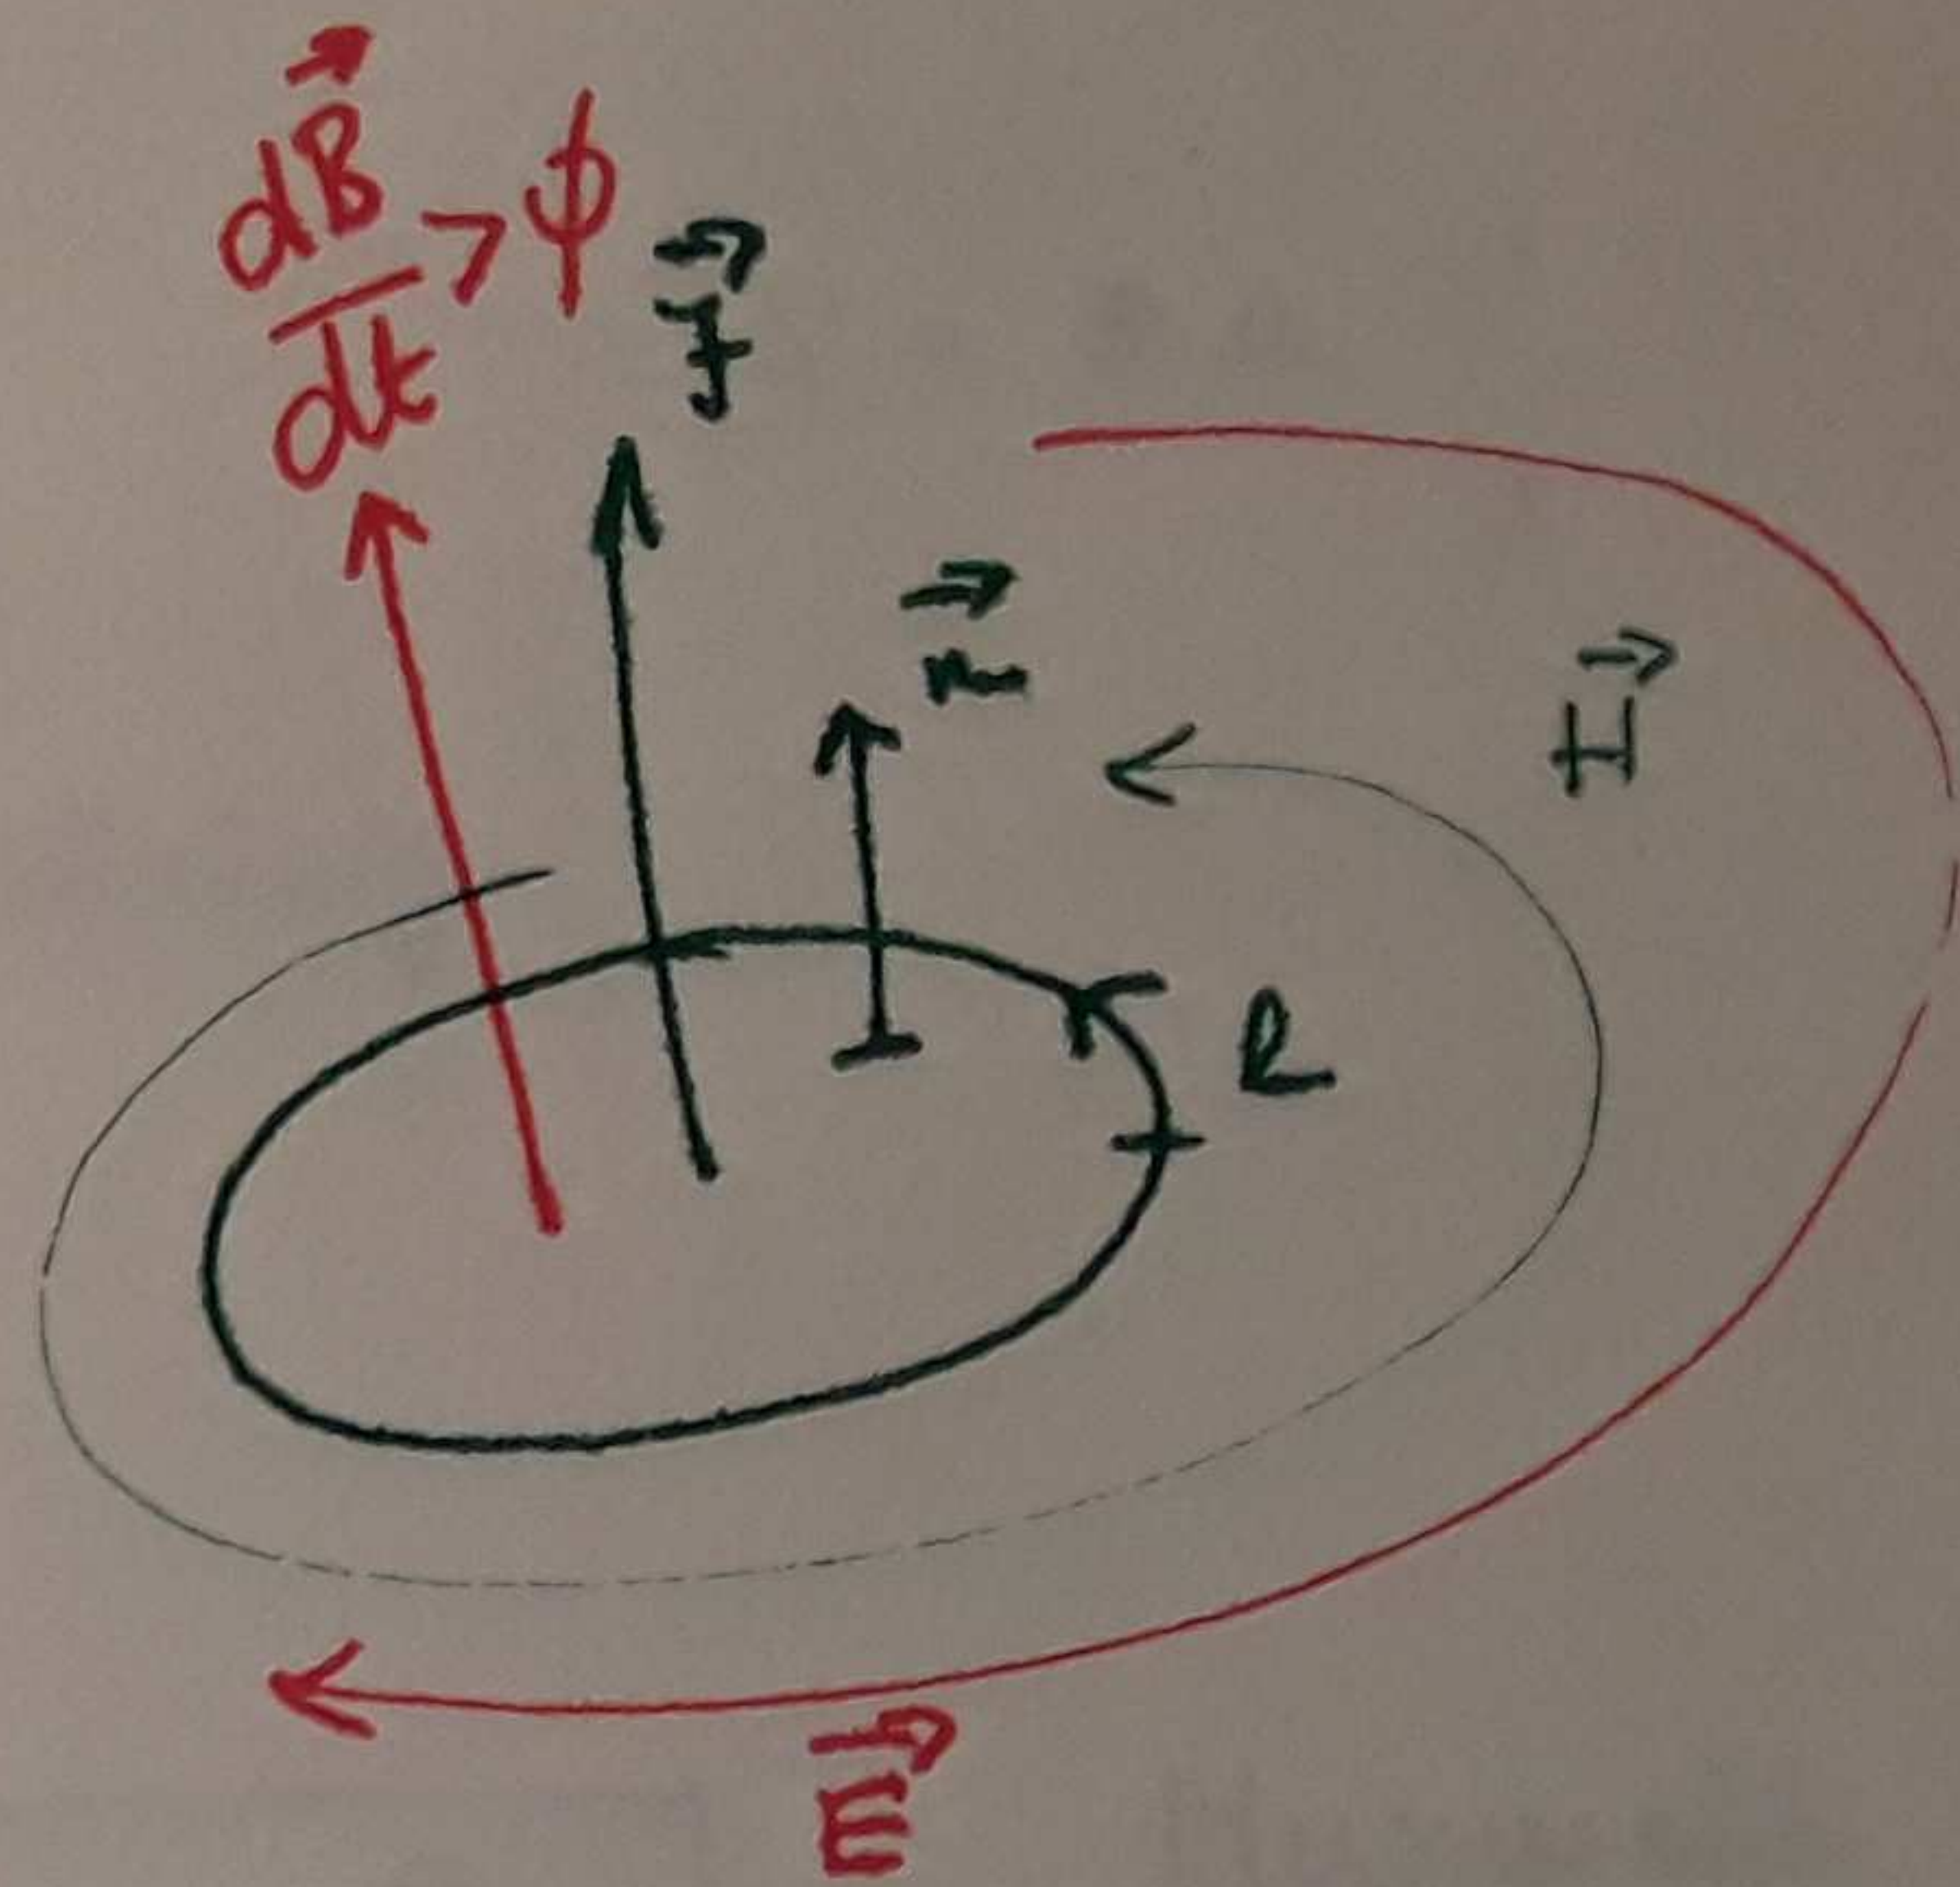 dB⃗/dt > ϕ
j⃗
n⃗
H⃗
l
E⃗